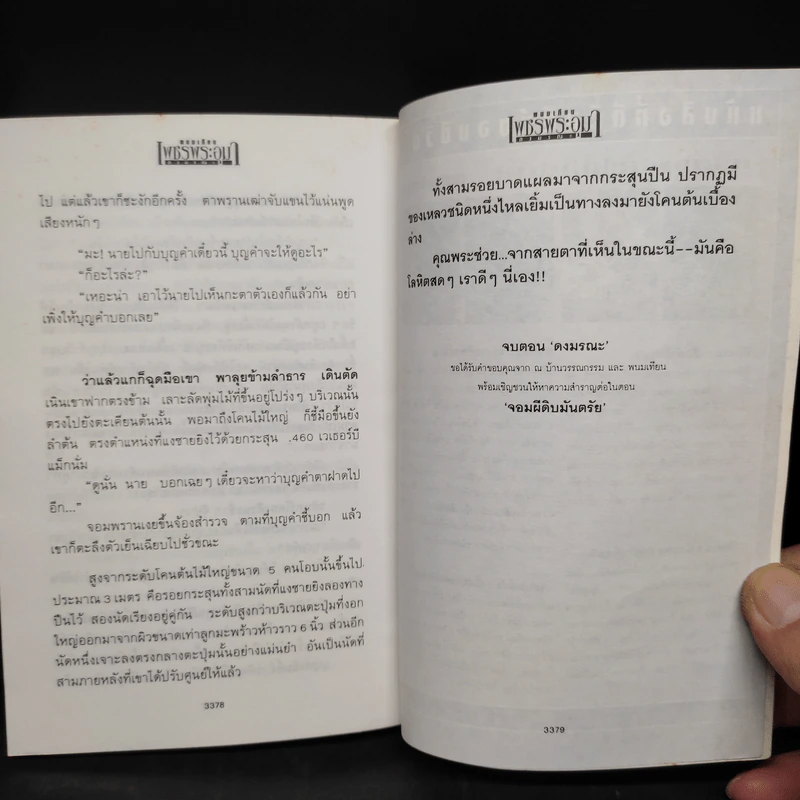 พนมเทียน
เพชรพระอุมา
ไป แต่แล้วเขาก็ชะงักอีกครั้ง ตาพรานเฒ่าจับแขนไว้แน่นพูด
เสียงหนักๆ
“มะ! นายไปกับบุญคำเดี๋ยวนี้ บุญคำจะให้ดูอะไร”
“ก็อะไรล่ะ?”
“เหอะน่า เอาไว้นายไปเห็นกะตาตัวเองก็แล้วกัน อย่า
เพิ่งให้บุญคำบอกเลย”
ว่าแล้วแกก็ฉุดมือเขา พาลุยข้ามลำธาร เดินตัด
เนินเขาฟากตรงข้าม เลาะลัดพุ่มไม้ที่ขึ้นอยู่โปร่งๆ บริเวณนั้น
ตรงไปยังตะเคียนต้นนั้น พอมาถึงโคนไม้ใหญ่ ก็ชี้มือขึ้นยัง
ลำต้น ตรงตำแหน่งที่แงซายยิงไว้ด้วยกระสุน .460 เวเธอร์บี
แม็กนั่ม
“ดูนั่น นาย บอกเฉยๆ เดี๋ยวจะหาว่าบุญคำตาฝาดไป
อีก...”
จอมพรานเงยขึ้นจ้องสำรวจ ตามที่บุญคำชี้บอก แล้ว
เขาก็ตะลึงตัวเย็นเฉียบไปชั่วขณะ
สูงจากระดับโคนต้นไม้ใหญ่ขนาด 5 คนโอบนั้นขึ้นไป
ประมาณ 3 เมตร คือรอยกระสุนทั้งสามนัดที่แงซายยิงลองทาง
ปืนไว้ สองนัดเรียงอยู่คู่กัน ระดับสูงกว่าบริเวณตะปุ่มที่งอก
ใหญ่ออกมาจากผิวขนาดเท่าลูกมะพร้าวห้าวราว 6 นิ้ว ส่วนอีก
นัดหนึ่งเจาะลงตรงกลางตะปุ่มนั้นอย่างแม่นยำ อันเป็นนัดที่
สามภายหลังที่เขาได้ปรับศูนย์ให้แล้ว
3378
พนมเทียน
เพชรพระอุมา
ทั้งสามรอยบาดแผลมาจากกระสุนปืน ปรากฏมี
ของเหลวชนิดหนึ่งไหลเยิ้มเป็นทางลงมายังโคนต้นเบื้อง
ล่าง
คุณพระช่วย...จากสายตาที่เห็นในขณะนี้--มันคือ
โลหิตสดๆ เราดีๆ นี่เอง!!
จบตอน ‘ดงมรณะ’
ขอได้รับคำขอบคุณจาก ณ บ้านวรรณกรรม และ พนมเทียน
พร้อมเชิญชวนให้หาความสำราญต่อในตอน
‘จอมผีดิบมันตรัย’
3379